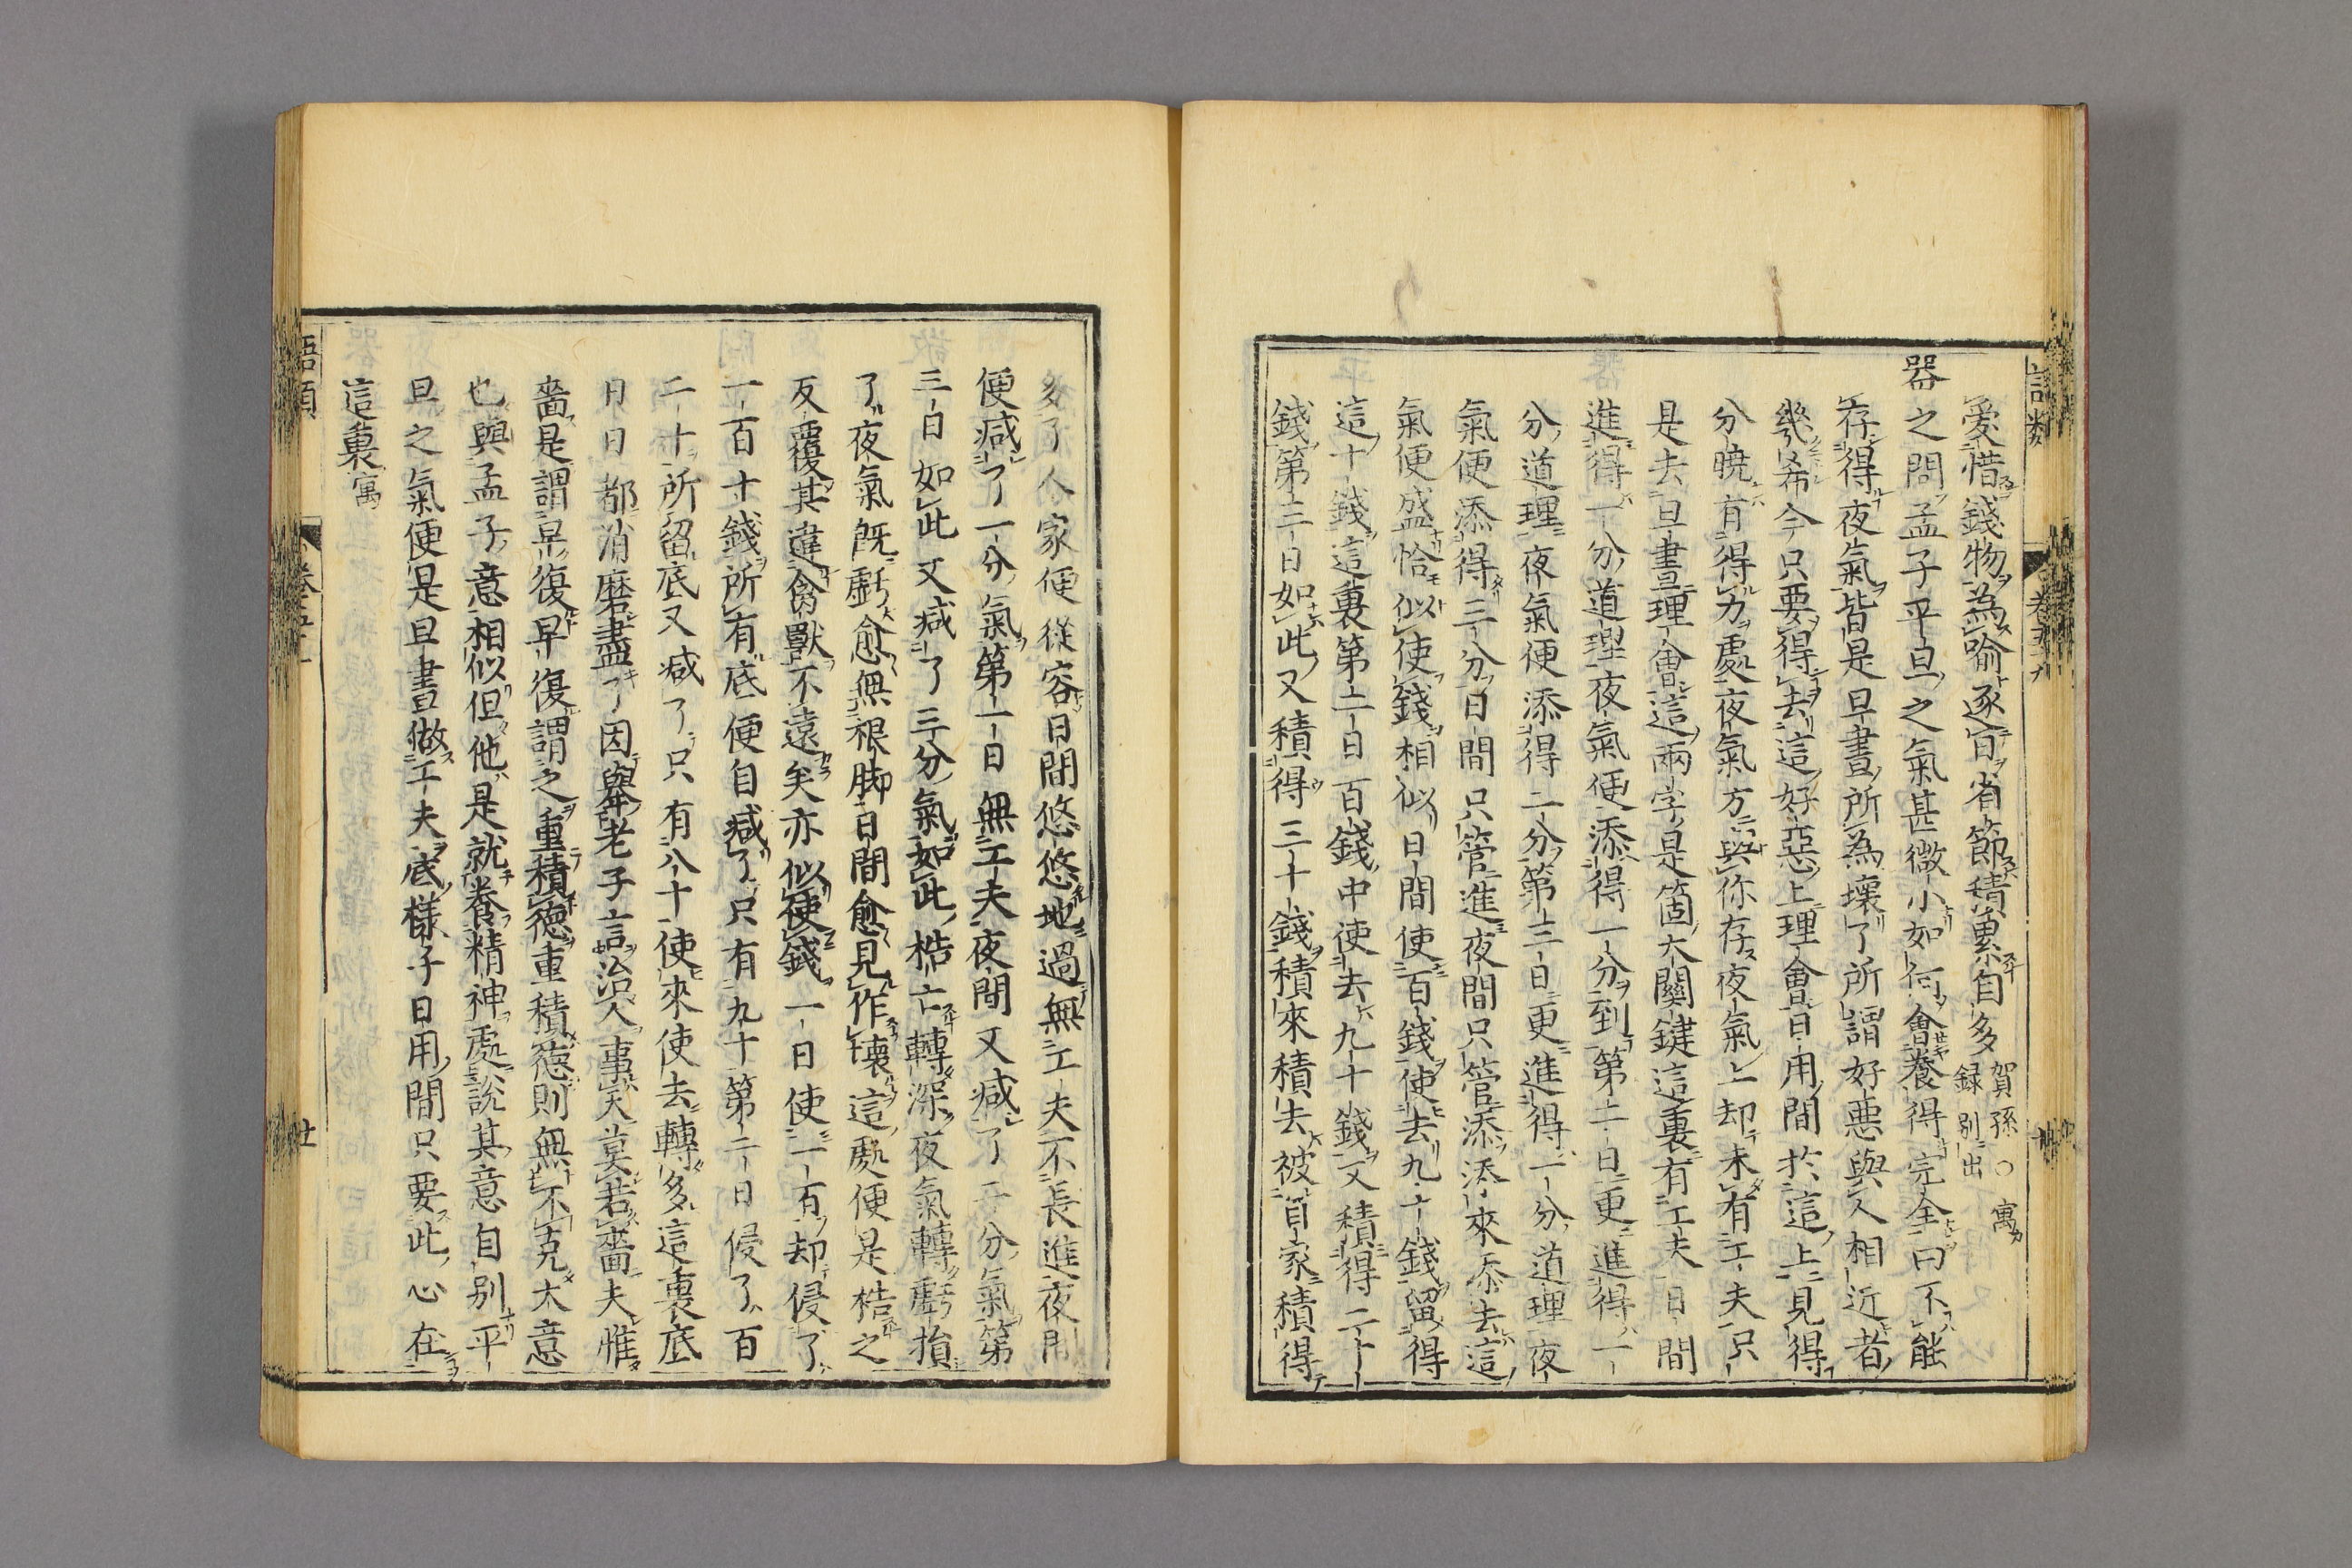 語類
卷五十九
愛惜錢物為喻逐日省節積累自多 賀孫○寓錄別出
器之問孟子平旦之氣甚微小如何會養得完全曰不能
存得夜氣皆是旦晝所為壞了所謂好惡與人相近者
幾希今只要得去這好惡上理會日用間於這上見得
分曉有得力處夜氣方與你存夜氣上却未有工夫只
是去旦晝理會這兩字是箇大關鍵這裏有工夫日間
進得一分道理夜氣便添得一分到第二日更進得一
分道理夜氣便添得二分第三日更進得一分道理夜
氣便添得三分日間只管進夜間只管添添來添去這
氣便盛恰似使錢相似日間使百錢使去九十錢留得
這十錢這裏第二日百錢中使去九十錢又積得二十
錢第三日如此又積得三十錢積來積去被自家積得
多了人家便從容日間悠悠地過無工夫不長進夜間
便減了一分氣第二日無工夫夜間又減了二分氣第
三日如此又減了三分氣如此梏亡轉深夜氣轉虧損
了夜氣既虧愈無根脚日間愈見作壞這處便是梏之
反覆其違禽獸不遠矣亦似使錢一日使一百却侵了
一百十錢所有底便自減了只有九十第二日侵了百
二十所留底又減了只有八十使來使去轉多這裏底
日日都消磨盡了因舉老子言治人事天莫若嗇夫惟
嗇是謂早復早復謂之重積德重積德則無不克大意
也與孟子意相似但他是就養精神處說其意自別平
旦之氣便是旦晝做工夫底樣子日用間只要此心在
這裏寓
語類
卷五十
廿